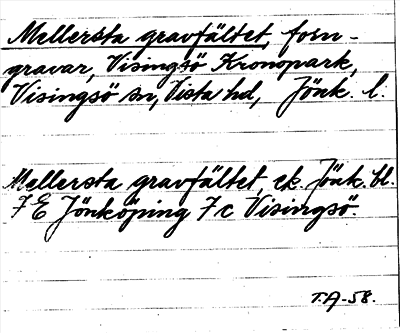 Mellersta gravfältet, forn-
gravar, Visingsö Kronopark,
Visingsö sn, Vista hd, Jönk. l.
Mellersta gravfältet, ek. Jönk. bl.
7 E Jönköping 7c Visingsö.
T.A-58.